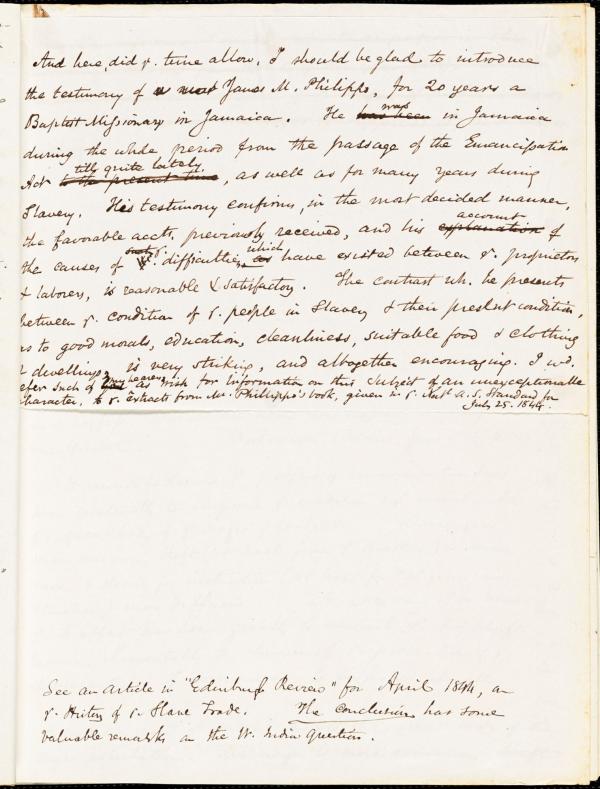 And here, did ye. time allow, I should be glad to introduce
the testimony of James M. Philippo, for 20 years a
Baptist Missionary in Jamaica. He has been was in Jamaica
during the whole period from the passage of the Emancipation
Act to the present time till quite lately, as well as for many years during
Slavery. His testimony confirms, in the most decided manner,
the favorable accts. previously received, and his explanation account of
the causes of ye. difficulties, as which have existed between ye. proprietors
& laborers, is reasonable & satisfactory. The contrast wh. he presents
between ye. condition of ye. people in Slavery & their present condition,
as to good morals, education, cleanliness, suitable food & clothing
& dwellings, is very striking, and altogether encouraging. I wd.
refer such of my hearers as wish for information on this subject of an unexceptionable
character, to ye. Extracts from Mr. Philippo's book, given in ye. Natl. A. S. Standard for
July 25. 1844.
See an article in "Edinburgh Review" for April 1844, on
ye. History of ye. Slave Trade. The conclusion has some
valuable remarks on the W. India question.